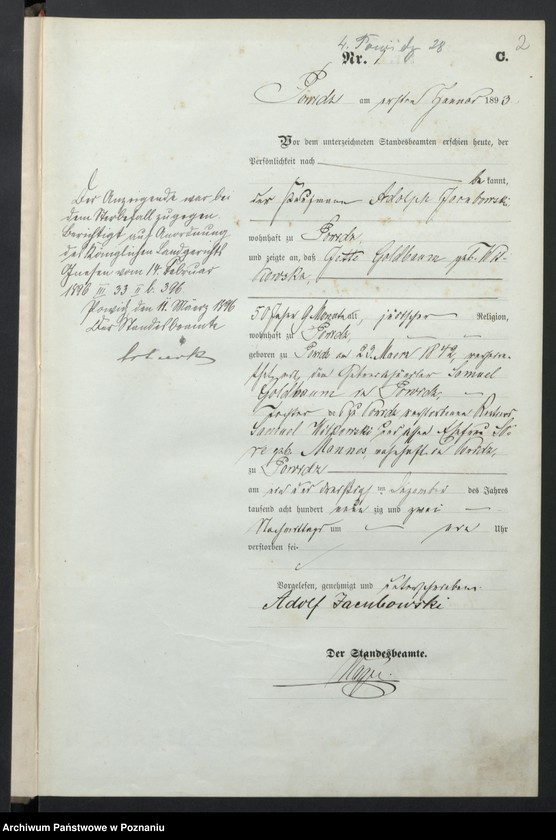 2
Nr. C.
Powidz am ersten Januar 1893
Vor dem unterzeichneten Standesbeamten erschien heute, der
Persönlichkeit nach
bekannt,
der Kaufmann Adolph Jacubowski
wohnhaft zu Powidz
und zeigte an, daß Goldbaum geb. Wit-
kowska,
50 Jahre 9 Monate alt, jüdischer Religion,
wohnhaft zu Powidz,
geboren zu Powidz am 1842, verhei-
Samuel
Goldbaum in Powidz,
Tochter des zu Powidz verstorbenen
Samuel Witkowski und dessen Ehefrau
geb. Mannes, wohnhaft in Powidz,
zu Powidz
am ein und dreißigsten Dezember des Jahres
tausend acht hundert neun zig und zwei
Nachmittags um ein Uhr
verstorben sei.
Vorgelesen, genehmigt und unterschrieben.
Adolf Jacubowski
Der Standesbeamte.
Der Anzeigende war bei
dem Sterbefall zugegen.
Berichtigt auf Anordnung
des Königlichen Landgerichts
Gnesen vom 14. Februar
1896 III. 33 II b. 366
Powidz den 11. März 1896
Der Standesbeamte
Archiwum Państwowe w Poznaniu